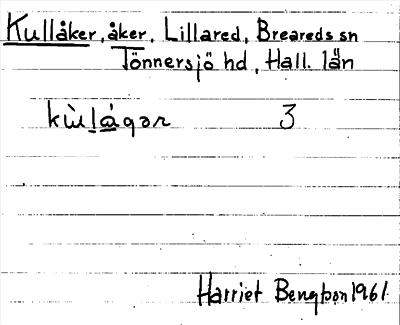 Kullåker, åker, Lillared, Breareds sn
Tönnersjö hd, Hall. län
kùlágər 3
Harriet Bengtson 1961